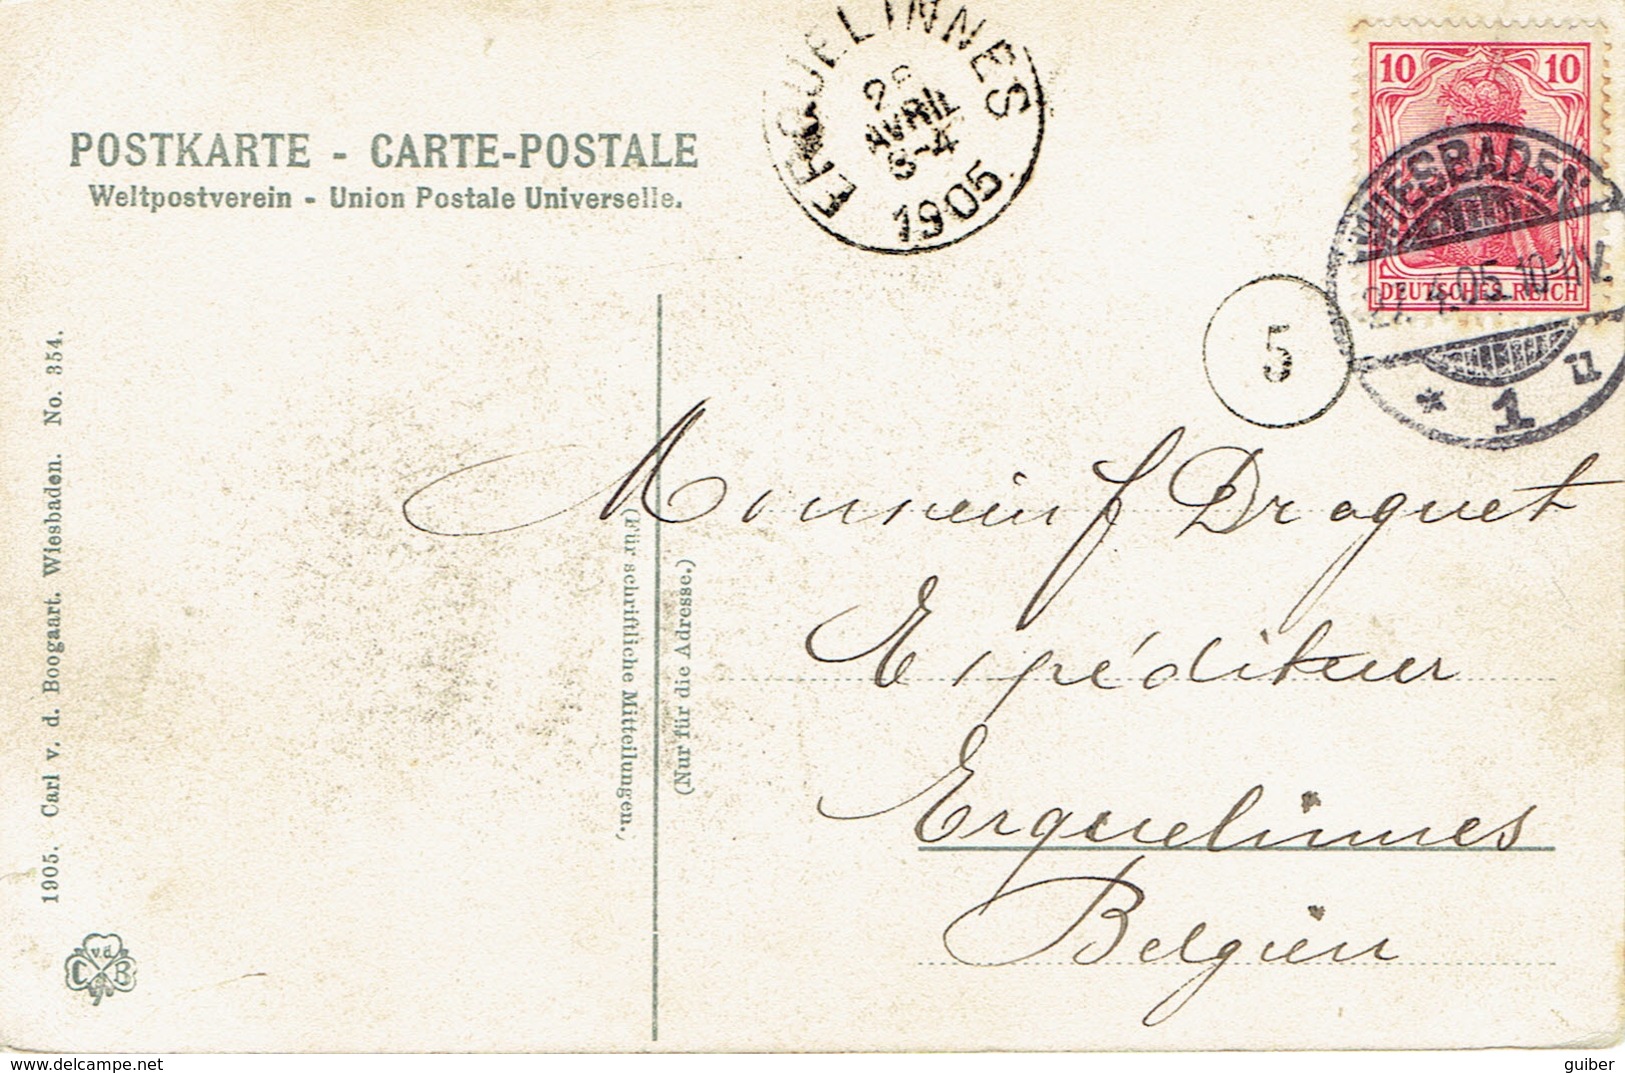 ERQUELINNES
AVRIL
8-4
1905
10 10
DEUTSCHES REICH
WIESBADEN
27.4.05.10-11V.
* 1 u
5
POSTKARTE - CARTE-POSTALE
Weltpostverein - Union Postale Universelle.
1905. Carl v. d. Boogaart. Wiesbaden. No. 354.
(Für schriftliche Mitteilungen.)
(Nur für die Adresse.)
Monsieur Droguet
Expéditeur
Erquelinnes
Belgien
v.d.
C B
guiber